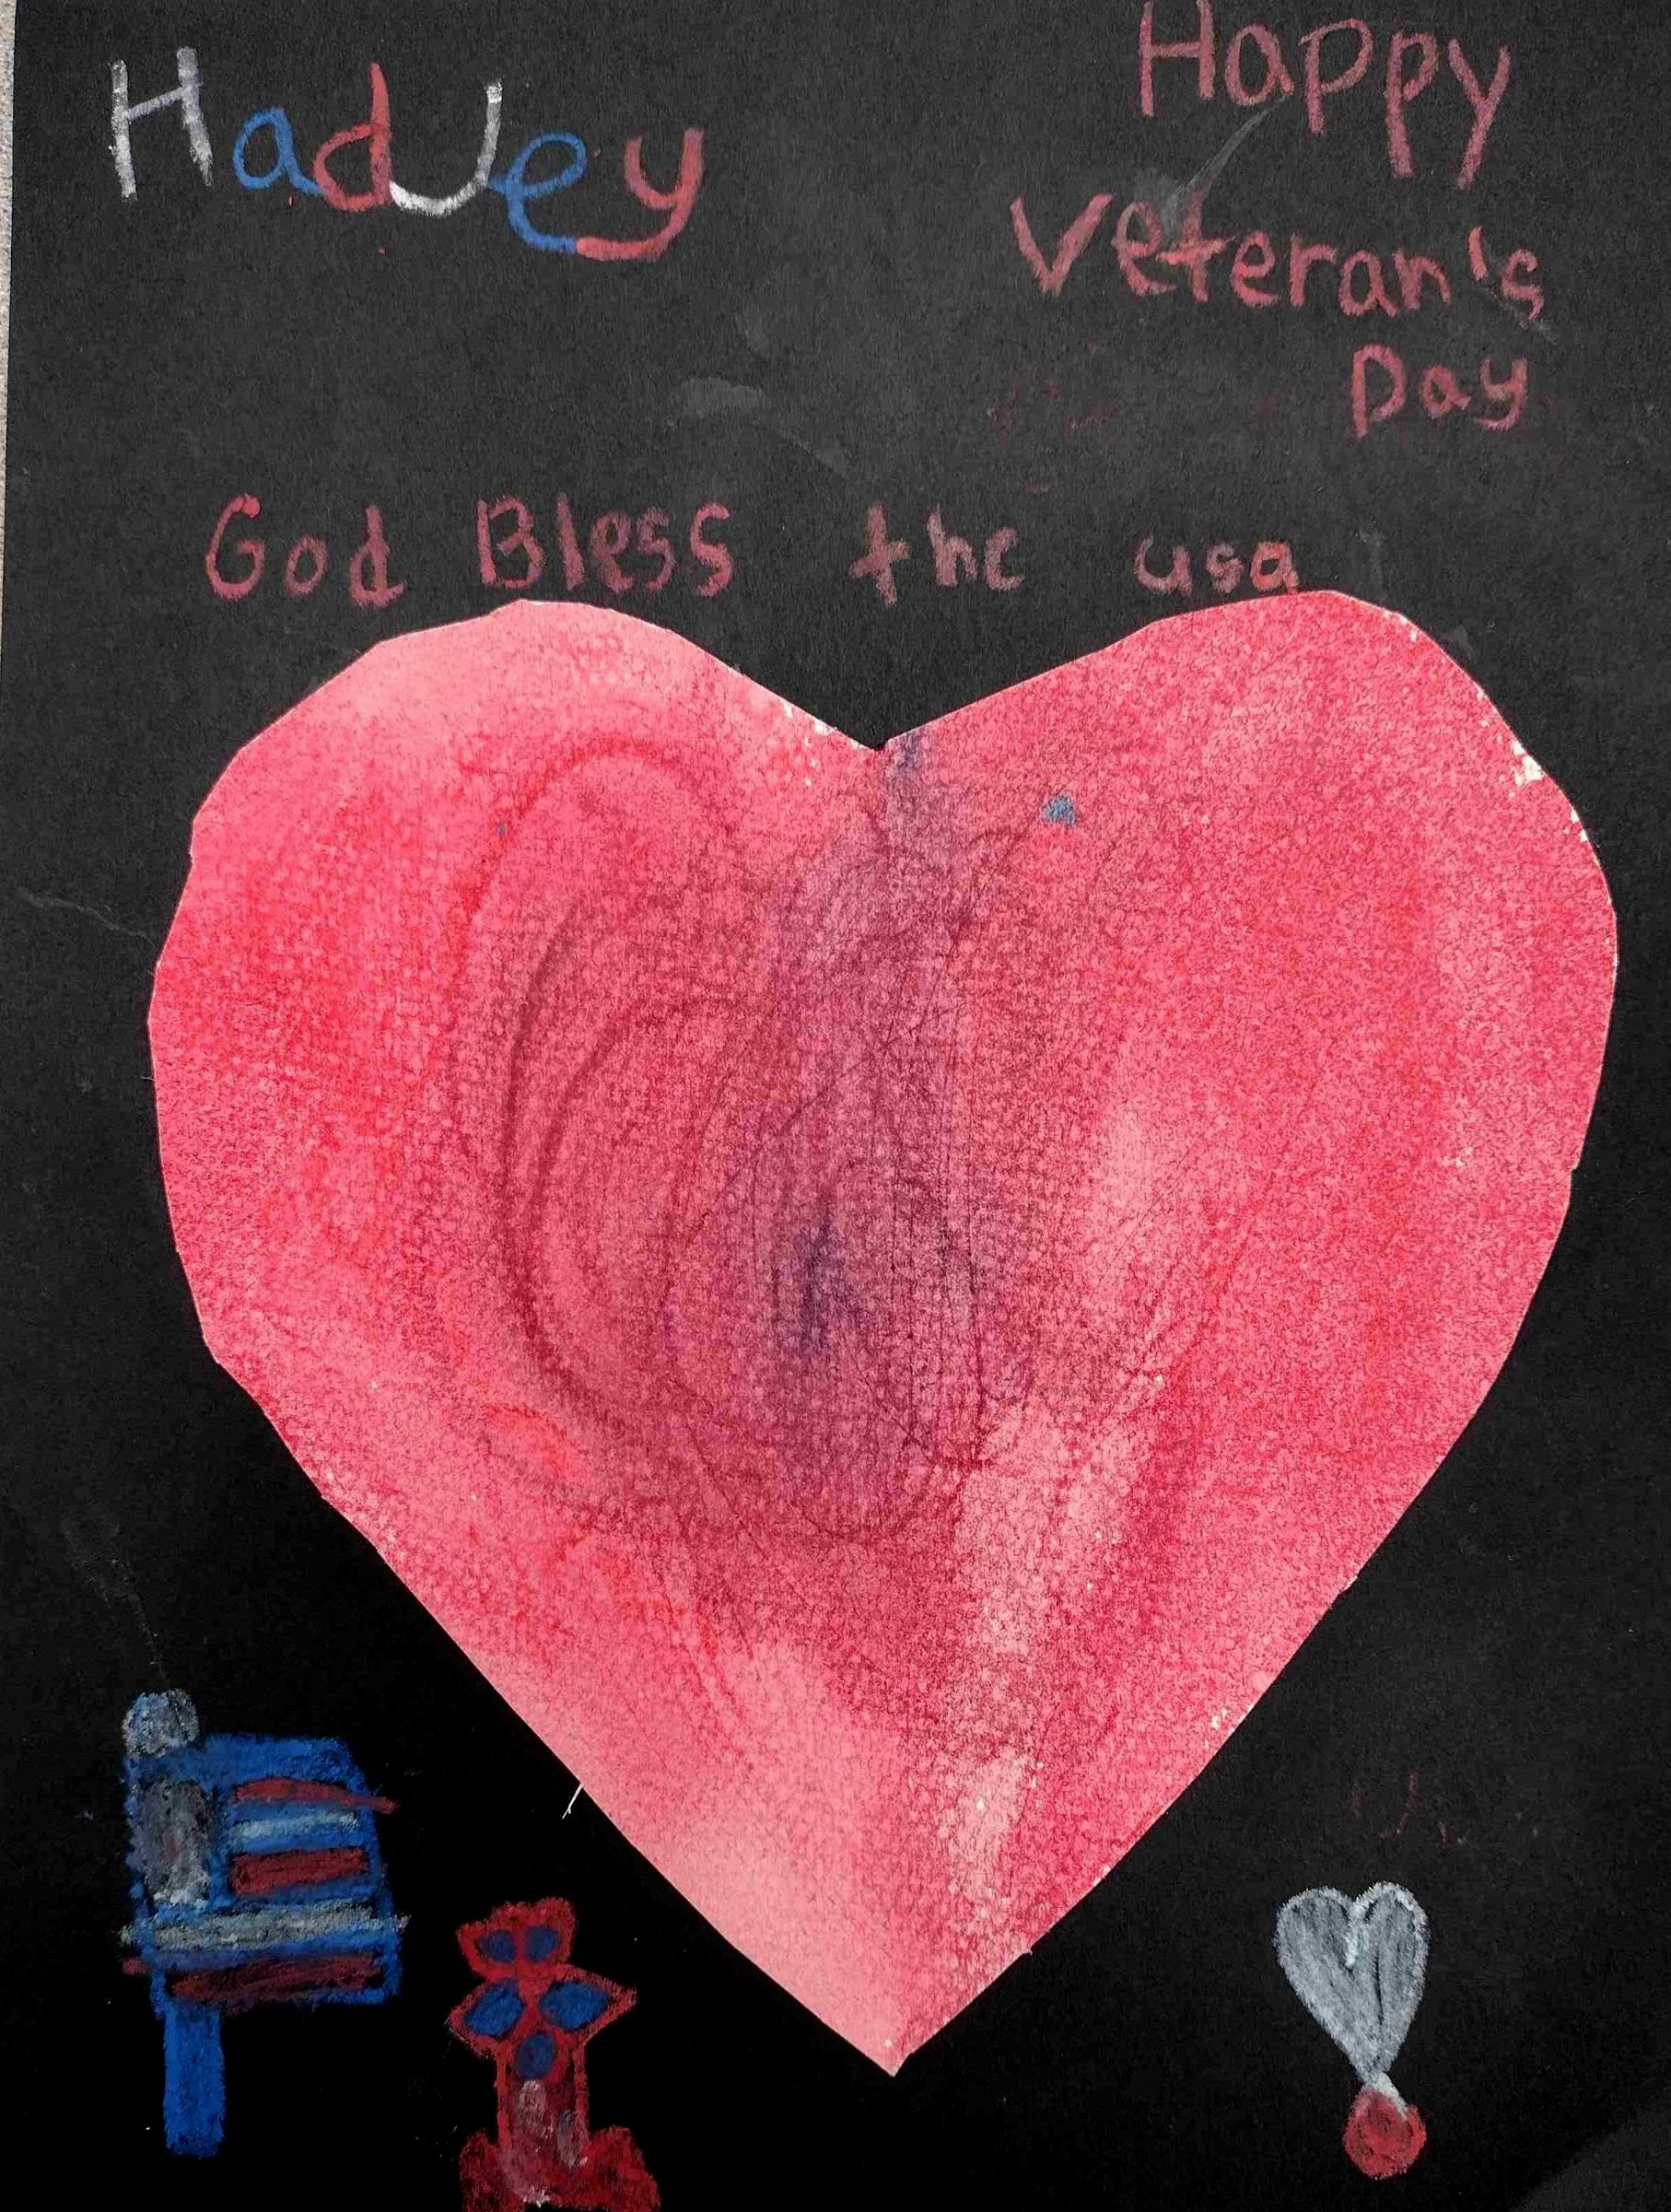 Hadley
Happy
Veteran's
Day
God Bless the usa